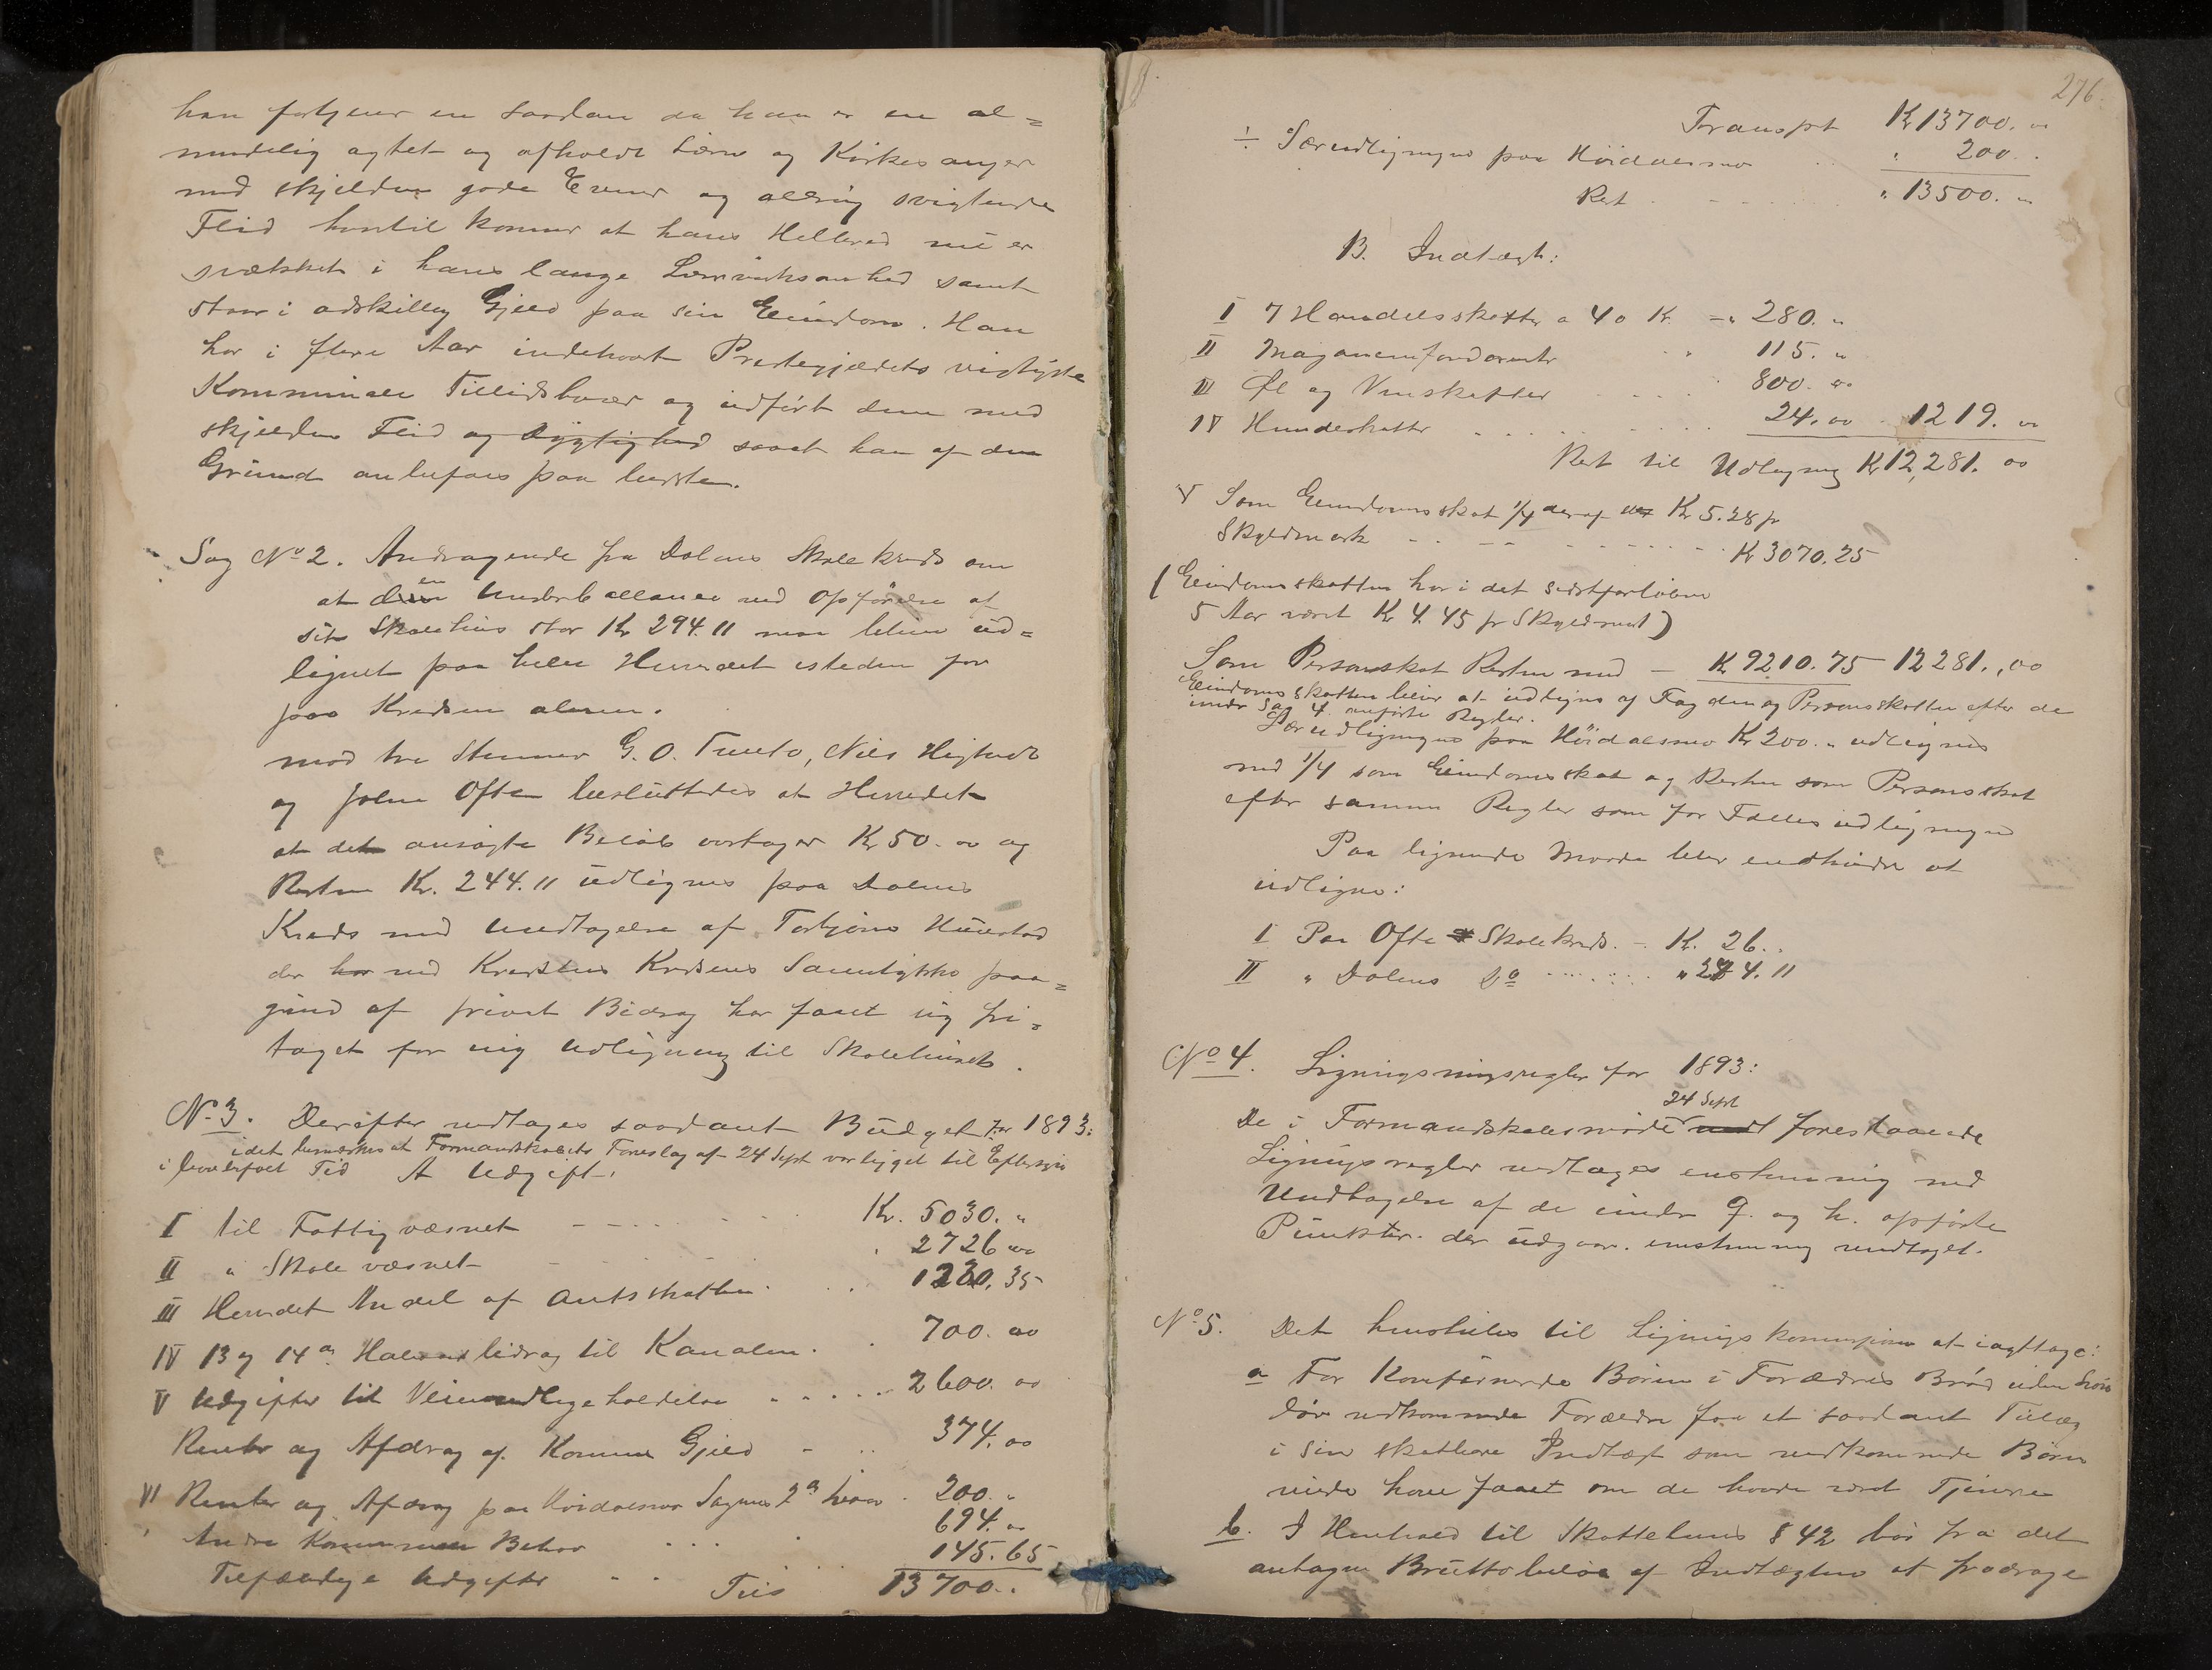 han fortjener en saadan da han er en al=
mindelig agtet og afholdt Lærer og Kirkesanger
med skjelden gode Evner og aldrig svigtende
Flid hertil kommer at hans Helbred nu er
svækket i hans lange Lærervirksomhed samt
staar i adskillig Gjeld paa sin Eiendom. Han
har i flere Aar indehavt Præstegjældets vigtigste
Kommunale Tillidshverv og udført dem med
skjelden Flid og Dygtighed saaat han af den
Grund anbefales paa bedste.
Sag No 2. Andragende fra Dalens Skolekreds om
at en Underballance ved Opførelse af
sit Skolehus stor Kr 294.11 maa blive ud=
lignet paa hele Herredet isteden for
paa Kredsen alene.
mod tre Stemmer G. O. Tveito, Nils Hegtveit
og John Ofte besluttedes at Herredet
at det ansøgte Beløb overtager Kr 50.00 og
Resten Kr. 244.11 udlignes paa Dalens
Kreds med Undtagelse af Torbjørn Huvestad
der har med Kredsens Samtykke paa=
grund af privat Bidrag har faaet sig fri=
taget for sig Udligning til Skolehuset.
No 3. Derefter vedtoges saadant Budget for 1893:
idet bemærkes at Formandskabets Forslag af 24 Sept var lagt til Eftersyn
i lovbefalet Tid A Udgift:
I til Fattigvæsnet Kr. 5030. "
II " Skolevæsnet " 2726 00
III Herredet Andel af Amtsskatten 1230.35
IV 13 og 14 a Halvaarsbidrag til Kanalen 700.00
V Udgifter til Veienes vedligeholdelse 2600.00
Renter og Afdrag af Kommunens Gjeld 374.00
VI Renter og Afdrag paa Høidalsmo Sogns 2det Laan 200. "
Andre Kommunens Behov 694. "
Tilfældige Udgifter 145.65
Tils 13700. "
276.
Transpt Kr 13700. "
÷ Særudligningen paa Høidalsmo " 200. "
Rest " 13500. "
B. Indtægt:
I 7 Handelsskatter a 40 Kr = " 280. "
II Magasinfondsrenter " 115. "
III Øl og Vinskatter 800. 00
IV Hundeskatter 24.00 1219. 00
Rest til Udligning Kr 12,281. 00
V Som Eiendomsskat 1/4 deraf Kr 5.28 pr
Skyldmark Kr 3070.25
(Eiendomsskatten har i det sidstforløbne
5 Aar været Kr 4.45 pr Skyldmark)
Som Personskat Resten med – Kr 9210.75 12281.,00
Eiendomsskatten bliver at udligne af Fogden og Personskatten efter de
under Sag 4 anførte Regler.
Særudligningen paa Høidalsmo Kr 200. " udlignes
med 1/4 som Eiendomsskat og Resten som Personskat
efter samme Regler som for Fællesudligningen
Paa lignende Maade blev endvidere at
udligne:
I Paa Ofte Skolekreds. – Kr. 26. "
II " Dalens Do " 244.11
No 4. Ligningsregler for 1893:
24 Sept
De i Formandskabsmøde foreslaaede
Ligningsregler vedtages enstemmig med
Undtagelse af de under g. og h. opførte
Punkter. der udgaar. enstemmig vedtaget.
No 5. Det henstilles til Ligningskommisjonen at iagttage:
a For Konfirmerede Børn i Forældres Brød uden Løn
bør vedkommende Forældre faa et saadant Tillæg
i sin skatbare Indtægt som vedkommende Børn
vilde have faaet om de havde været Tjenere
b. I Henhold til Skatteloven § 42 bør fra det
antagne Bruttobeløb af Indtægten at fradrage